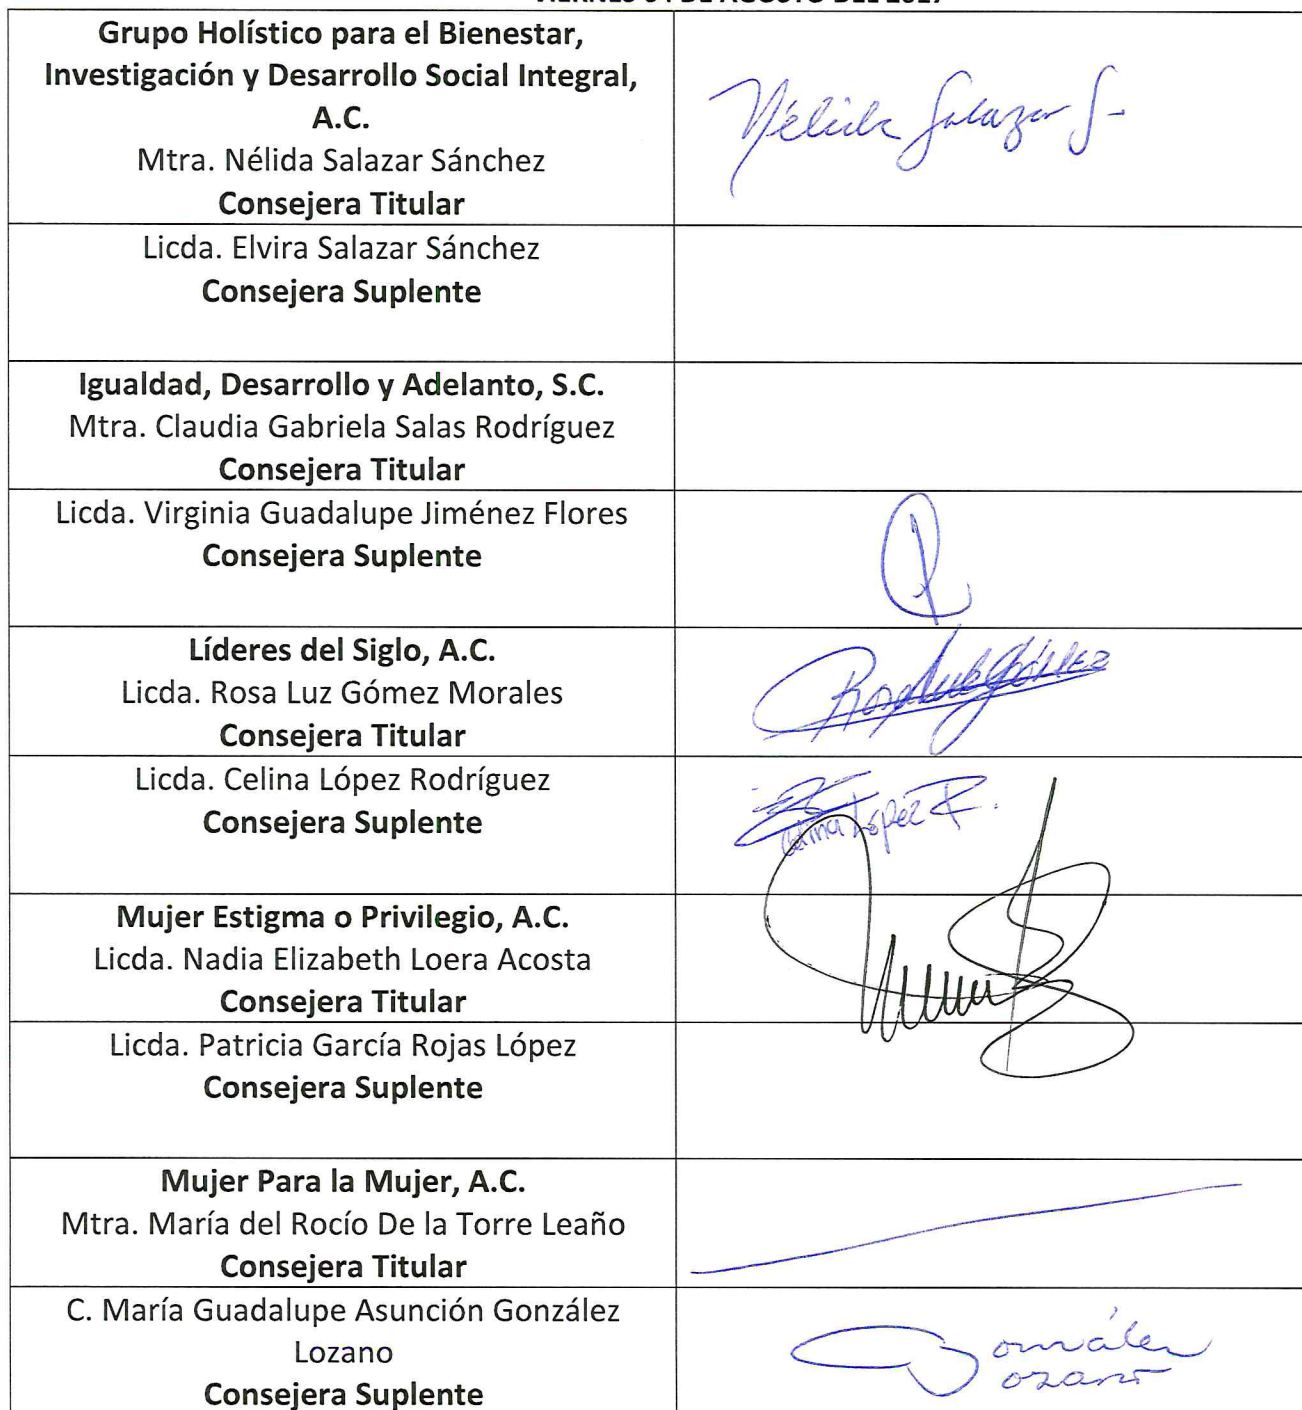 VIERNES 04 DE AGOSTO DEL 2017
Grupo Holístico para el Bienestar,
Investigación y Desarrollo Social Integral,
A.C.
Mtra. Nélida Salazar Sánchez
Consejera Titular
Nélida Salazar S
Licda. Elvira Salazar Sánchez
Consejera Suplente
Igualdad, Desarrollo y Adelanto, S.C.
Mtra. Claudia Gabriela Salas Rodríguez
Consejera Titular
Licda. Virginia Guadalupe Jiménez Flores
Consejera Suplente
Líderes del Siglo, A.C.
Licda. Rosa Luz Gómez Morales
Consejera Titular
Rosa Luz Gómez
Licda. Celina López Rodríguez
Consejera Suplente
Celina López R.
Mujer Estigma o Privilegio, A.C.
Licda. Nadia Elizabeth Loera Acosta
Consejera Titular
Licda. Patricia García Rojas López
Consejera Suplente
Mujer Para la Mujer, A.C.
Mtra. María del Rocío De la Torre Leaño
Consejera Titular
C. María Guadalupe Asunción González
Lozano
Consejera Suplente
González
ozano